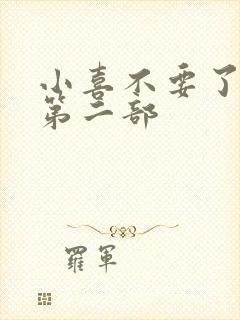 小喜不要了
第二部
羅軍